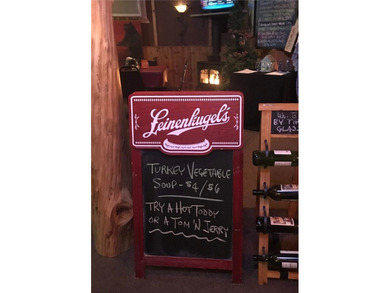 Leinenkugel's
TURKEY VEGETABLE
SOUP - $4/$6
TRY A HOT TODDY
OR A TOM N JERRY
BY THE
GLASS